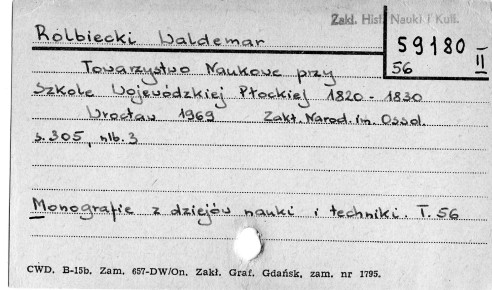 Zakł. Hist. Nauki i Kult.
Rolbiecki Waldemar
59180
II
56
Towarzystwo Naukowe przy
Szkole Wojewódzkiej Płockiej 1820 - 1830
Wrocław 1969 Zakł. Narod. im. Ossol.
s. 305, nlb. 3
Monografie z dziejów nauki i techniki. T. 56
CWD. B-15b. Zam. 657-DW/On. Zakł. Graf. Gdańsk, zam. nr 1795.